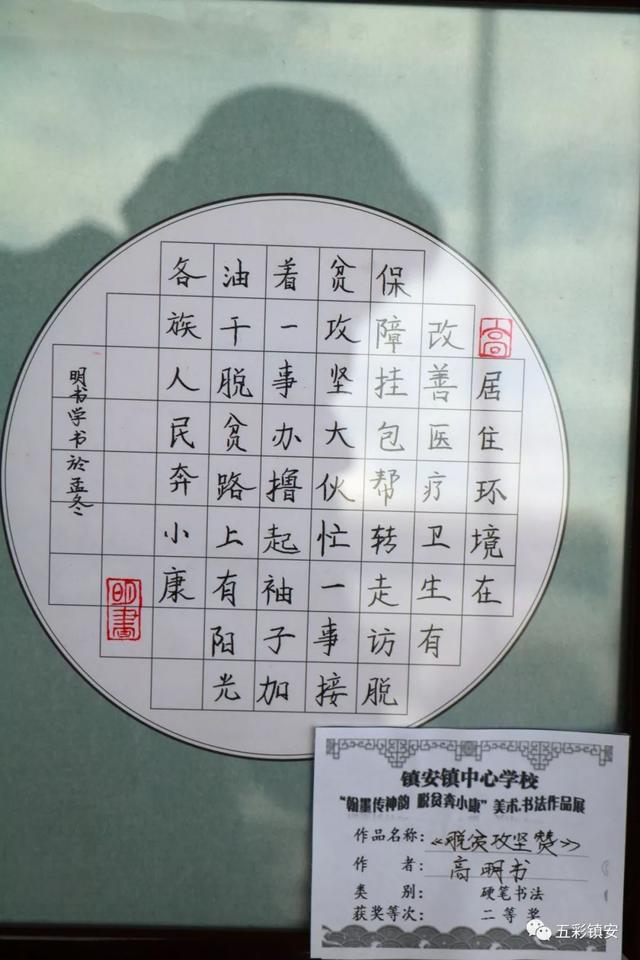 高
居住环境在
改善医疗卫生有
保障挂包帮转走访脱
贫攻坚大伙忙一事接
着一事办撸起袖子加
油干脱贫路上有阳光
各族人民奔小康
明书学书於孟冬
明書
镇安镇中心学校
“翰墨传神韵 脱贫奔小康”美术.书法作品展
作品名称：《脱贫攻坚赞》
作者：高明书
类别：硬笔书法
获奖等次：二等奖
五彩镇安